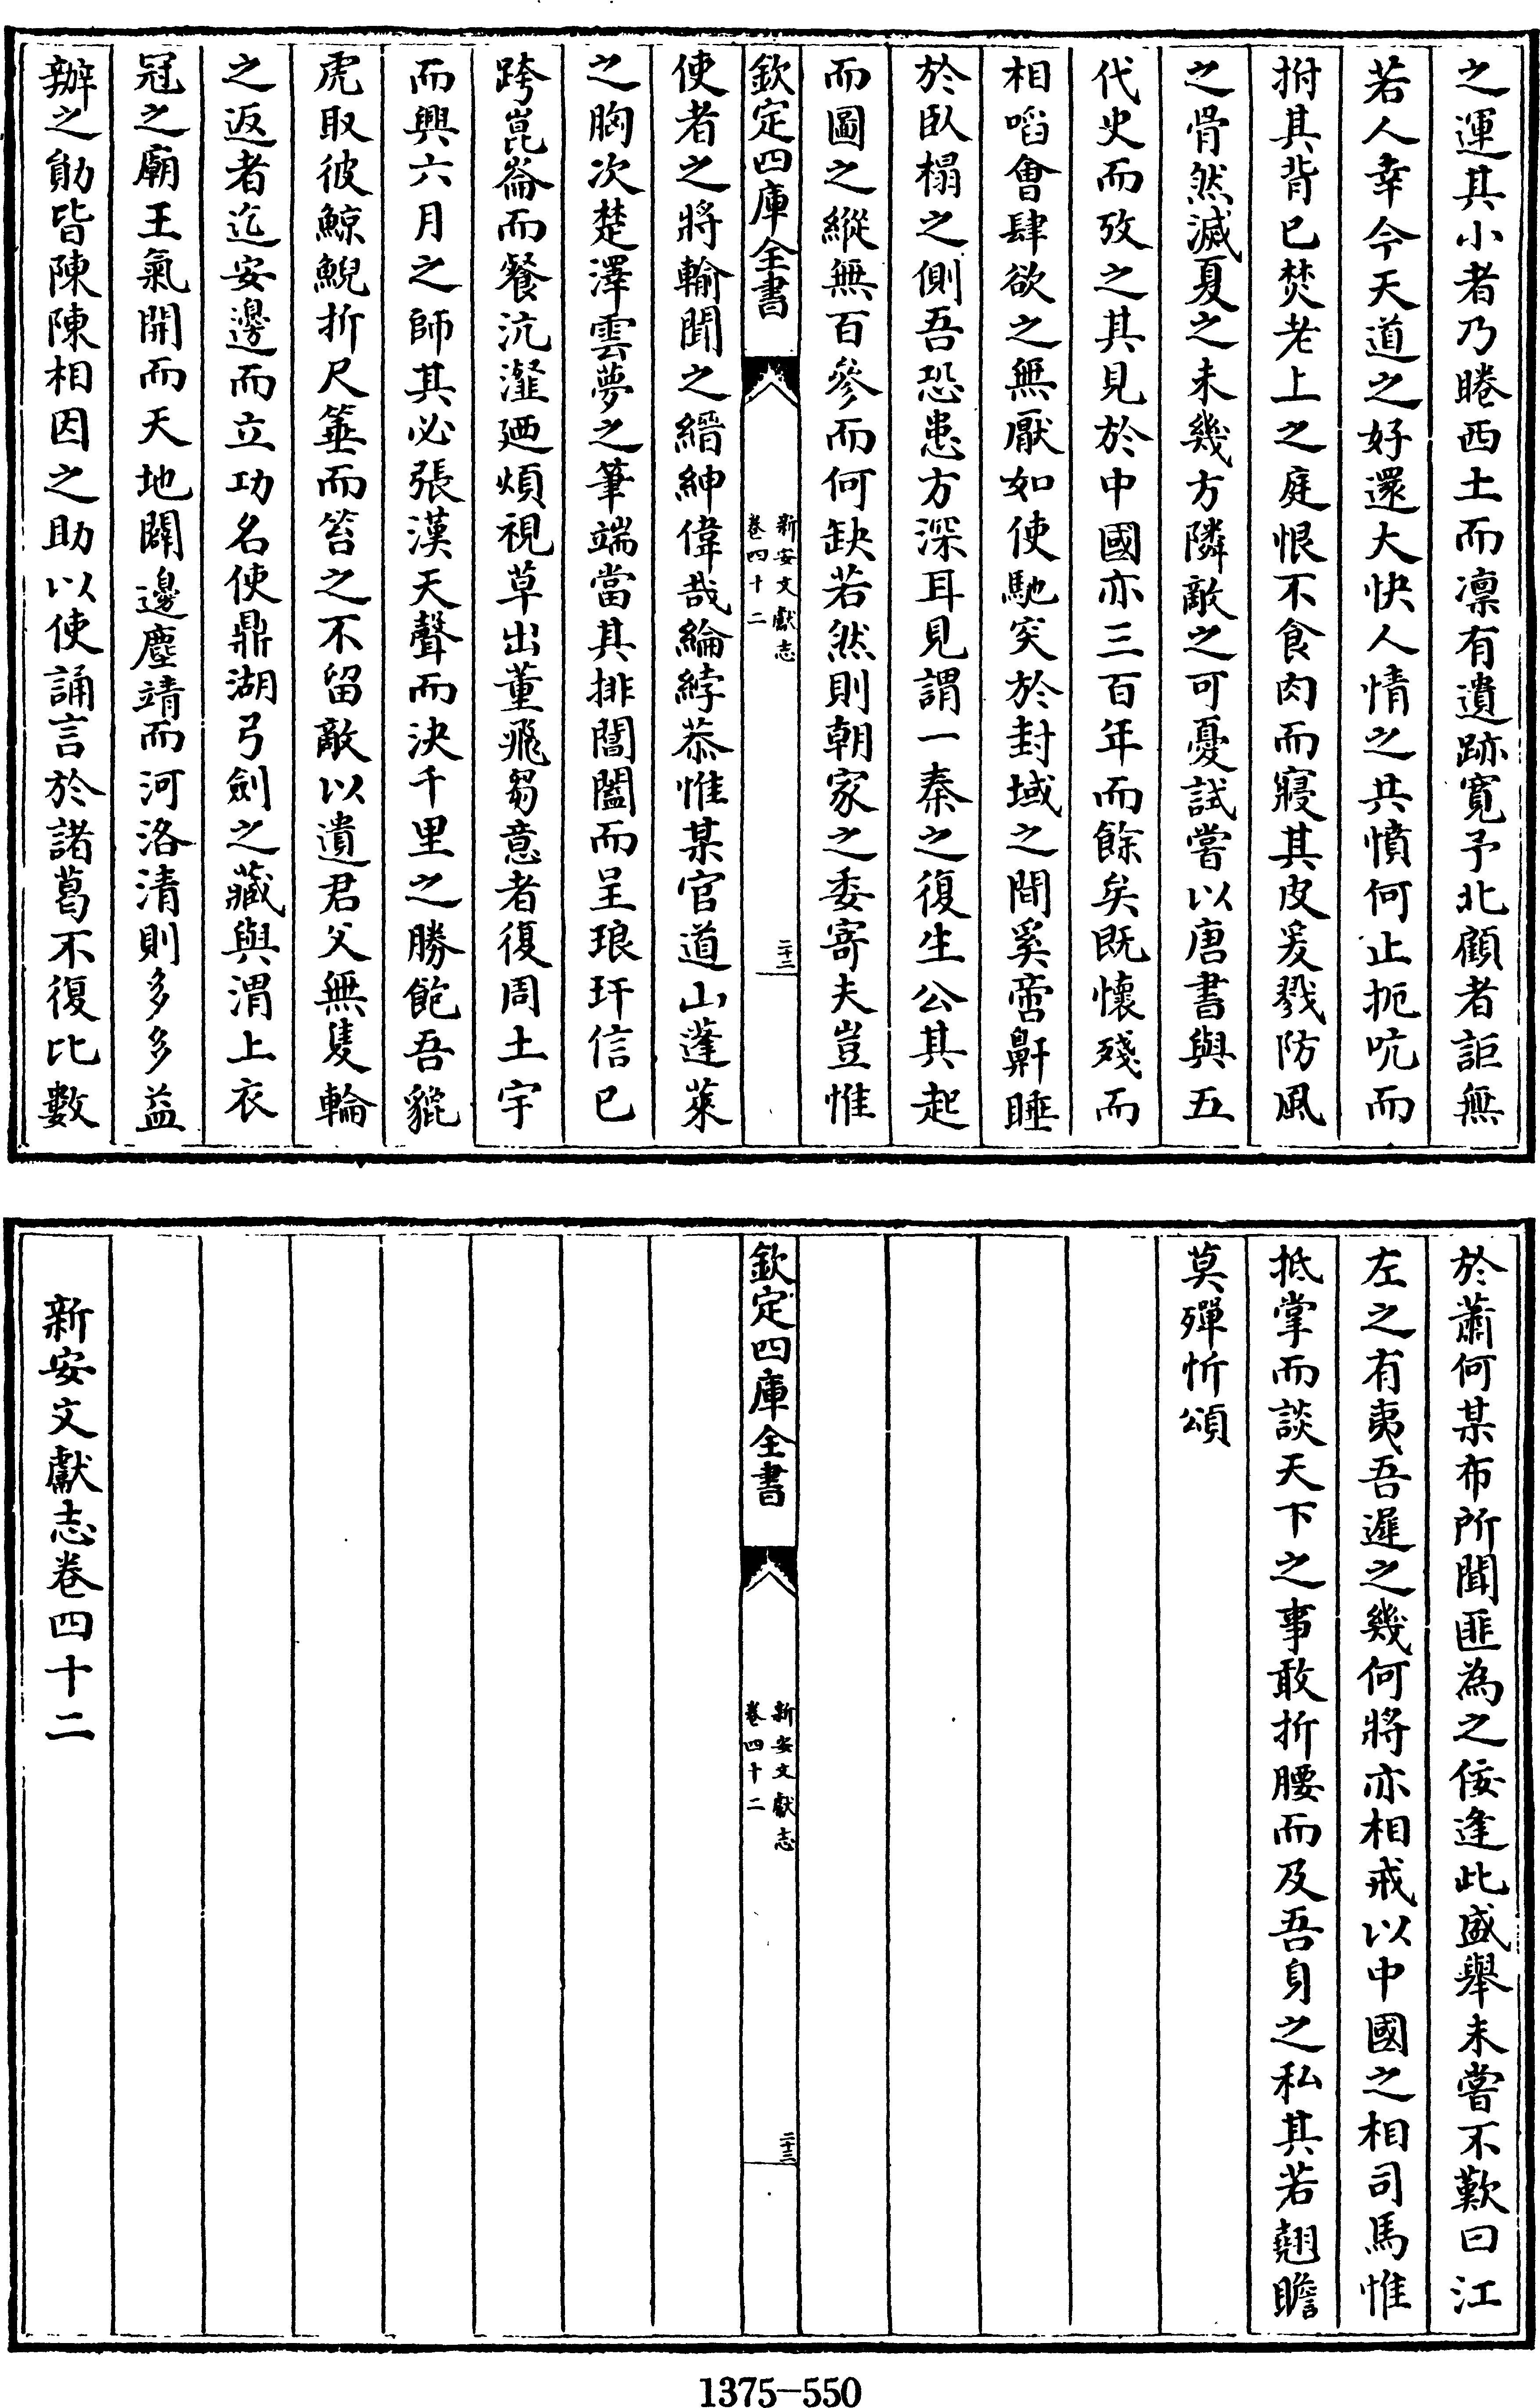 之運其小者乃睠西土而凛有遺跡寛予北顧者詎無
若人幸今天道之好還大快人情之共憤何止扼吭而
拊其背已焚老上之庭恨不食肉而寢其皮爰戮防風
之骨然滅夏之未幾方隣敵之可憂試嘗以唐書與五
代史而攷之其見於中國亦三百年而餘矣既懷殘而
相㗖會肆欲之無厭如使馳突於封域之間奚啻鼾睡
於臥榻之側吾恐患方深耳見謂一秦之復生公其起
而圖之縱無百參而何缺若然則朝家之委寄夫豈惟
欽定四庫全書
新安文獻志
卷四十二
二十二
使者之將輸聞之縉紳偉哉綸綍恭惟某官道山蓬萊
之胸次楚澤雲夢之筆端當其排閶闔而呈琅玕信已
跨崑崙而餐沆瀣廼煩視草出董飛芻意者復周土宇
而興六月之師其必張漢天聲而決千里之勝飽吾貔
虎取彼鯨鯢折尺箠而笞之不留敵以遺君父無隻輪
之返者迄安邊而立功名使鼎湖弓劍之藏與渭上衣
冠之廟王氣開而天地闢邊塵靖而河洛清則多多益
辦之勛皆陳陳相因之助以使誦言於諸葛不復比數
於蕭何某布所聞匪為之佞逢此盛舉未嘗不歎曰江
左之有夷吾遲之幾何將亦相戒以中國之相司馬惟
抵掌而談天下之事敢折腰而及吾身之私其若翹瞻
莫殫忻頌
欽定四庫全書
新安文獻志
卷四十二
二十三
新安文獻志卷四十二
1375-550